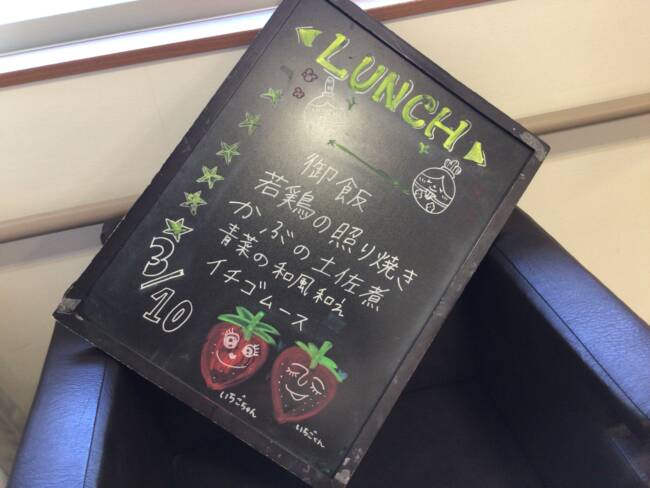 LUNCH
御飯
若鶏の照り焼き
かぶの土佐煮
青菜の和風和え
イチゴムース
3/10
いちごちゃん
いちごくん